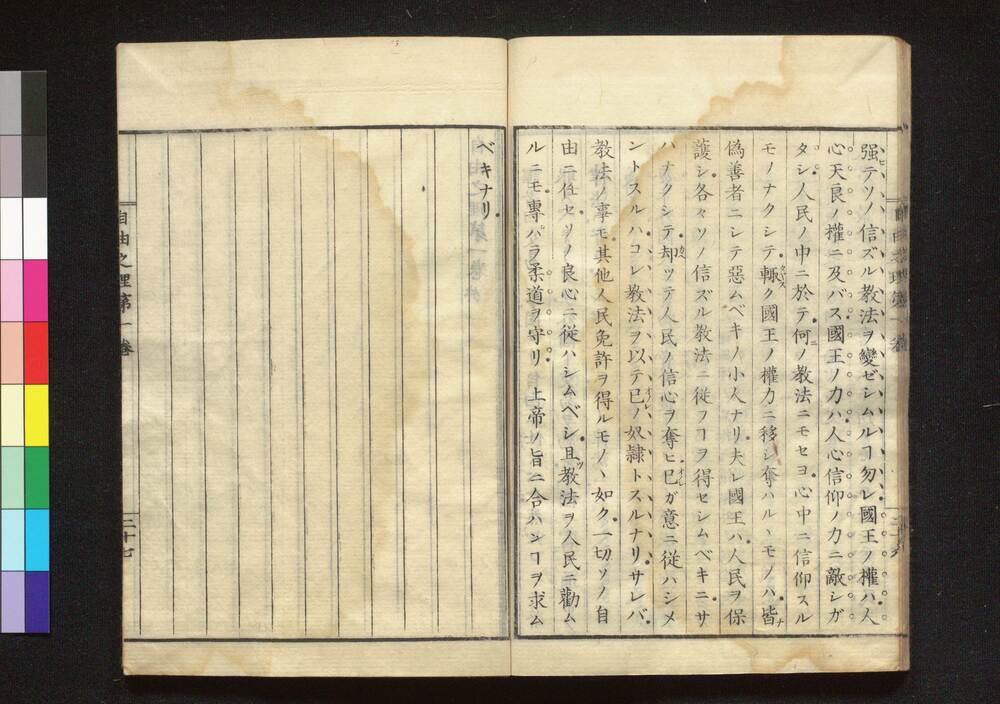 强テソノ信ズル教法ヲ變ゼシムルヿ勿レ國王ノ權ハ人
心天良ノ權ニ及バズ國王ノ力ハ人心信仰ノ力ニ敵シガ
タシ人民ノ中ニ於テ何ノ教法ニモセヨ心中ニ信仰スル
モノナクシテ輙ク國王ノ權力ニ移シ奪ハルヽモノハ皆
僞善者ニシテ惡ムベキノ小人ナリ夫レ國王ハ人民ヲ保
護シ各々ソノ信ズル教法ニ從フヿヲ得セシムベキニサ
ハナクシテ却ツテ人民ノ信心ヲ奪ヒ己ガ意ニ從ハシメ
ントスルハコレ教法ヲ以テ己ノ奴隷トスルナリサレバ
教法ノ事モ其他人民免許ヲ得ルモノヽ如ク一切ソノ自
由ニ任セソノ良心ニ從ハシムベシ且教法ヲ人民ニ勸ム
ルニモ專パラ柔道ヲ守リ 上帝ノ旨ニ合ハンヿヲ求ム
ベキナリ
自由之理第一卷
二十七